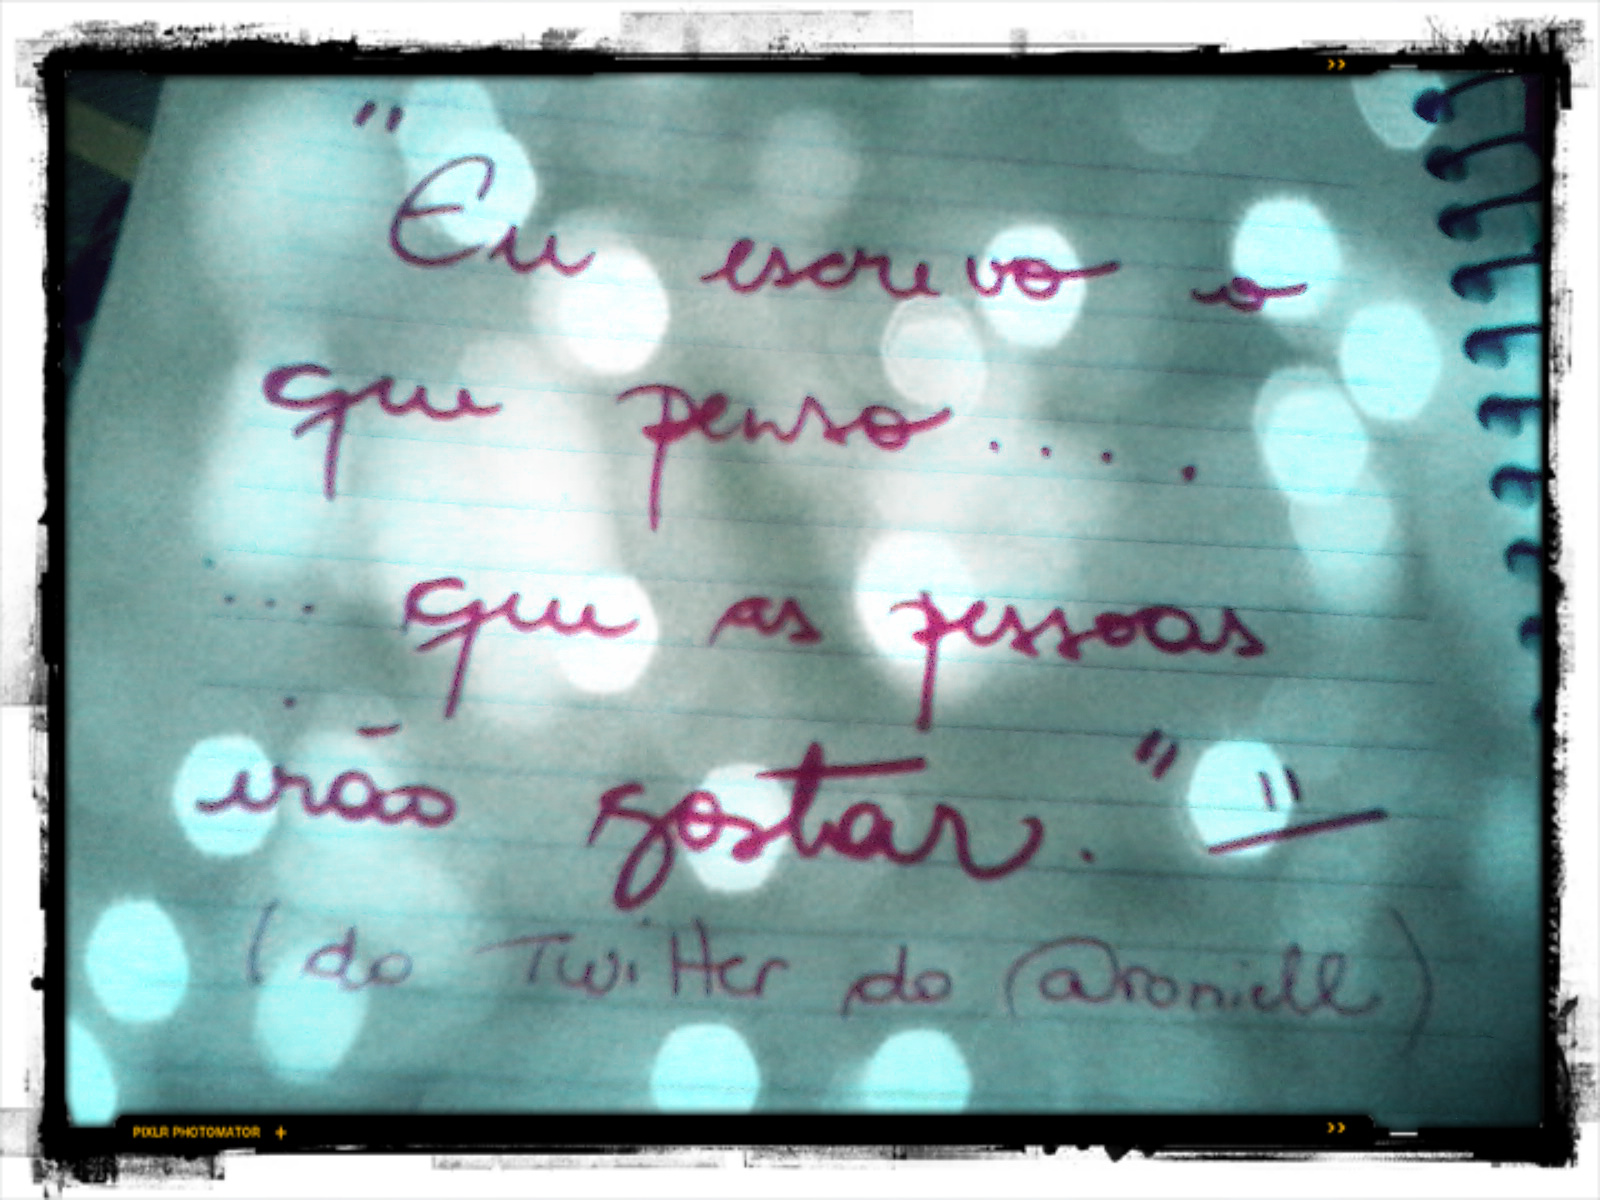 "
Eu escrevo o
que penso....
... que as pessoas
irão gostar." "
(do Twitter do @roniell)
PIXLR PHOTOMATOR +